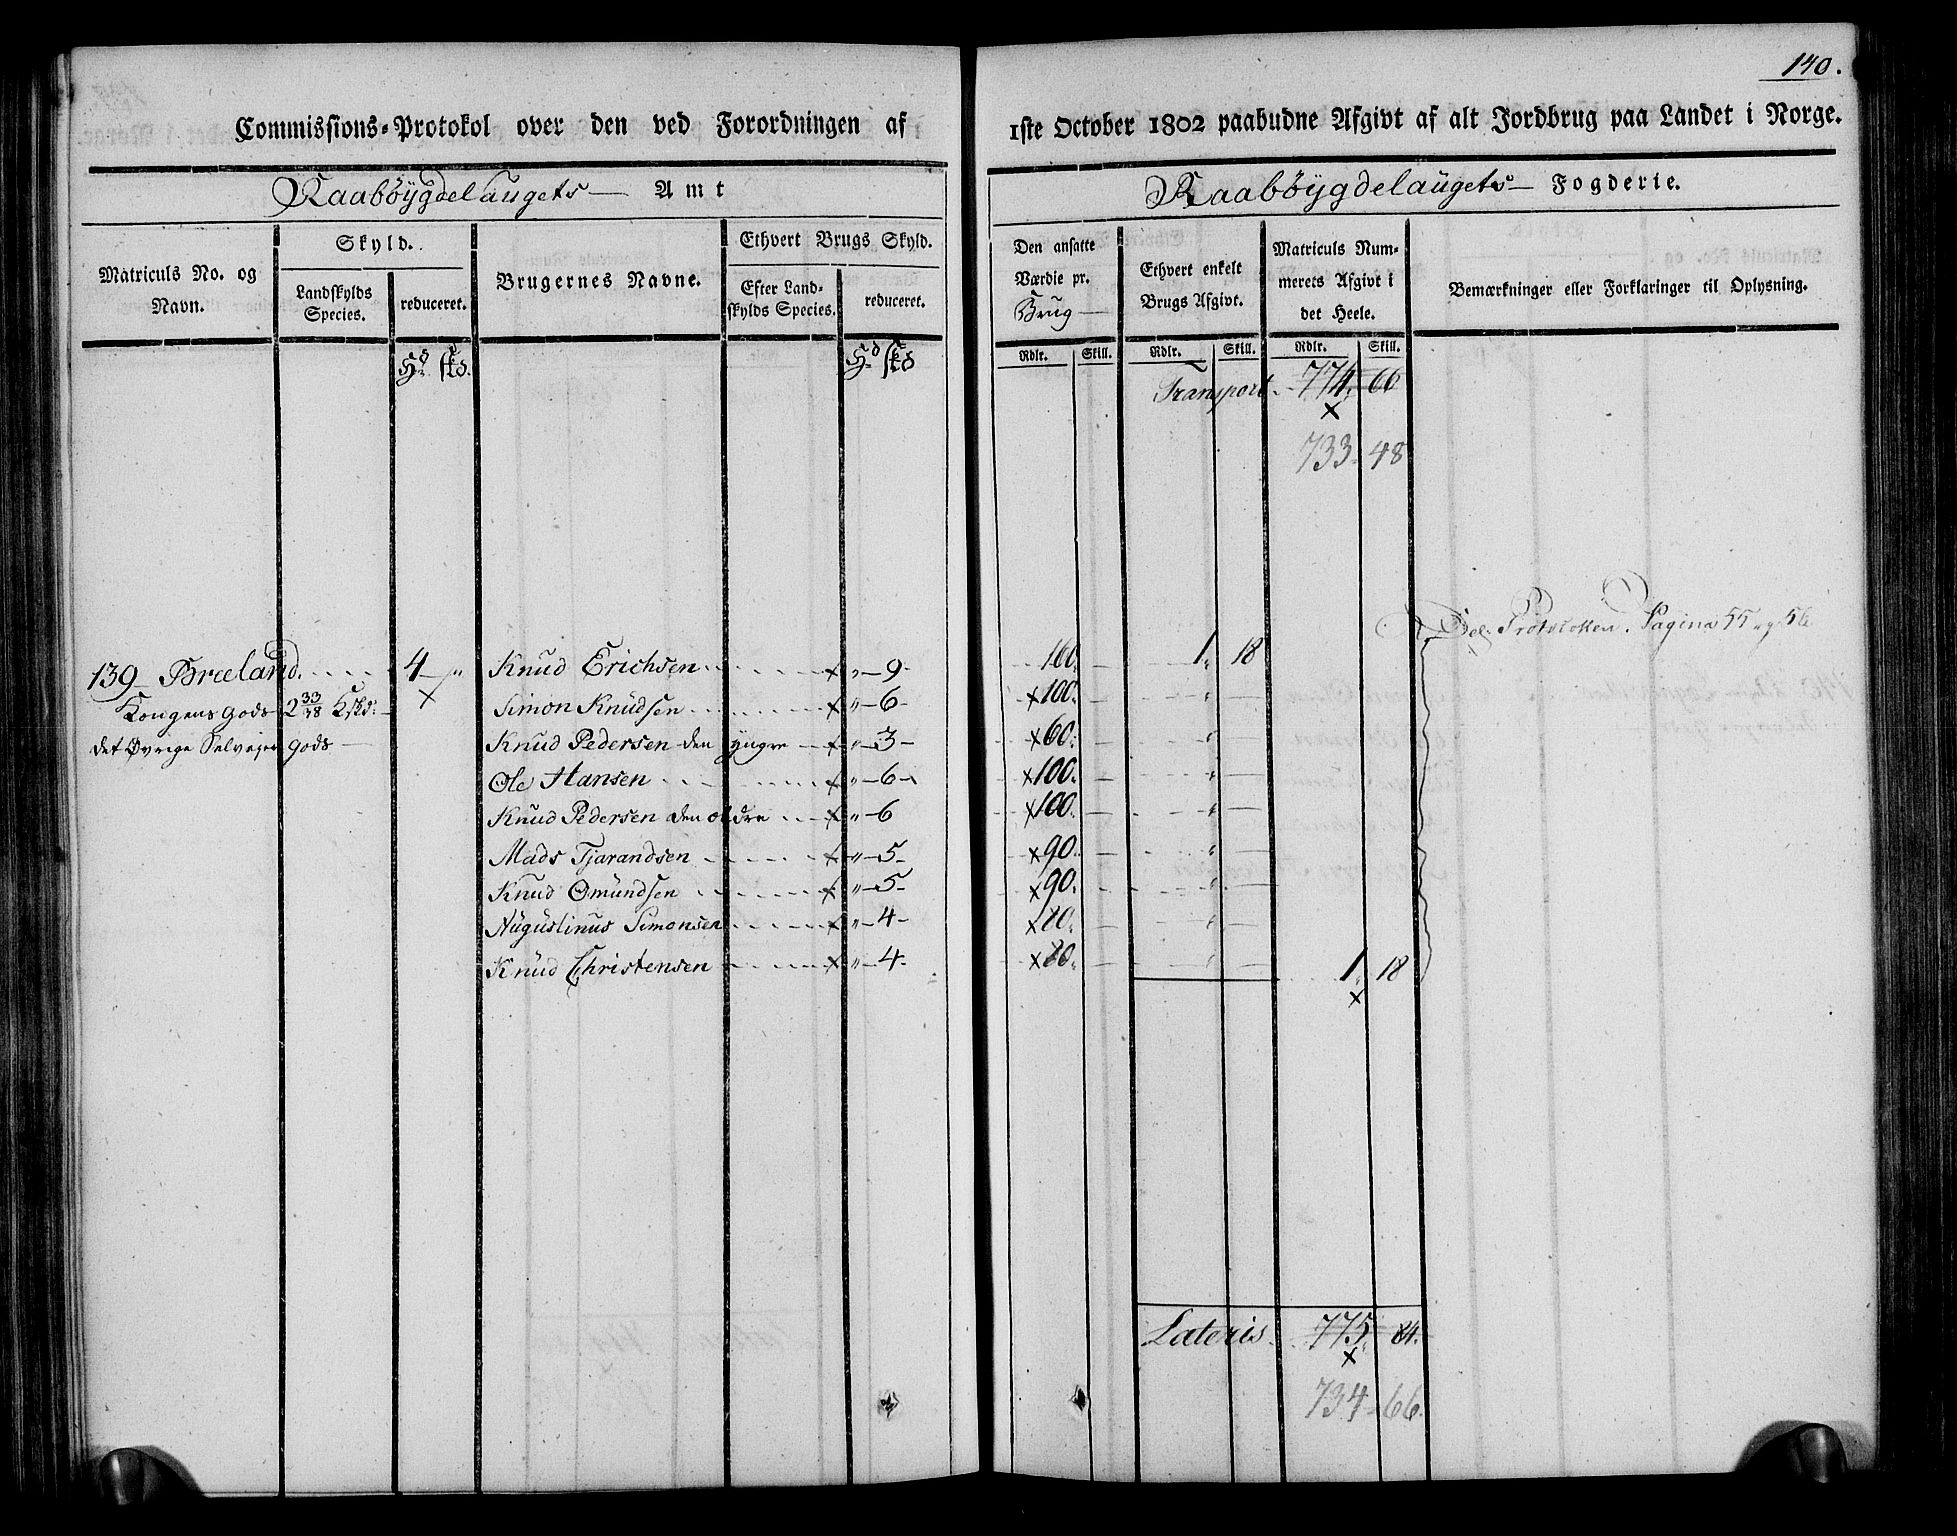 140.
Commissions=Protokol over den ved Forordningen af
1ste October 1802 paabudne Afgivt af alt Jordbrug paa Landet i Norge.
Raabøygdelaugets Amt
Raabøygdelaugets Fogderie.
Matriculs No. og Navn.
Skyld.
Landskylds Species.
reduceret.
Brugernes Navne.
Ethvert Brugs Skyld.
Efter Land-skylds Species.
reduceret.
Den ansatte Værdie pr. Brug
Ethvert enkelt Brugs Afgivt.
Matriculs Num-merets Afgivt i det Heele.
Bemærkninger eller Forklaringer til Oplysning.
Hd skd.
Hd skd
Rdlr. Skill. Rdlr. Skill. Rdlr. Skill.
Transport. 774. 66
x
733. 48
Del. Protocollen. Pagina 55 og 56
139 Bræland. 4 " Knud Erichsen x " 9 160. 1. 18
Kongens gods 2 33/48 Kskd: x Simon Knudsen x " 6 x100. "
det Øvrige Selvejer gods Knud Pedersen den yngre x " 3 x60. "
Ole Hansen x " 6 x100. "
Knud Pedersen den ældre x " 6 x100. "
Mads Tjarandsen x " 5 x90. "
Knud Omundsen x " 5 x90. "
Augustinus Simonsen x " 4 x80. "
Knud Christensen x " 4 x80. "
1. 18
x
Lateris. 775. 84.
x
734. 66.